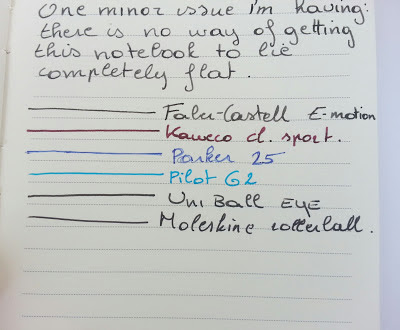 One minor issue I'm having:
there is no way of getting
this notebook to lie
completely flat.
Faber-Castell E-motion
Kaweco cl. sport.
Parker 25
Pilot G2
Uni Ball EYE
Moleskine rollerball.